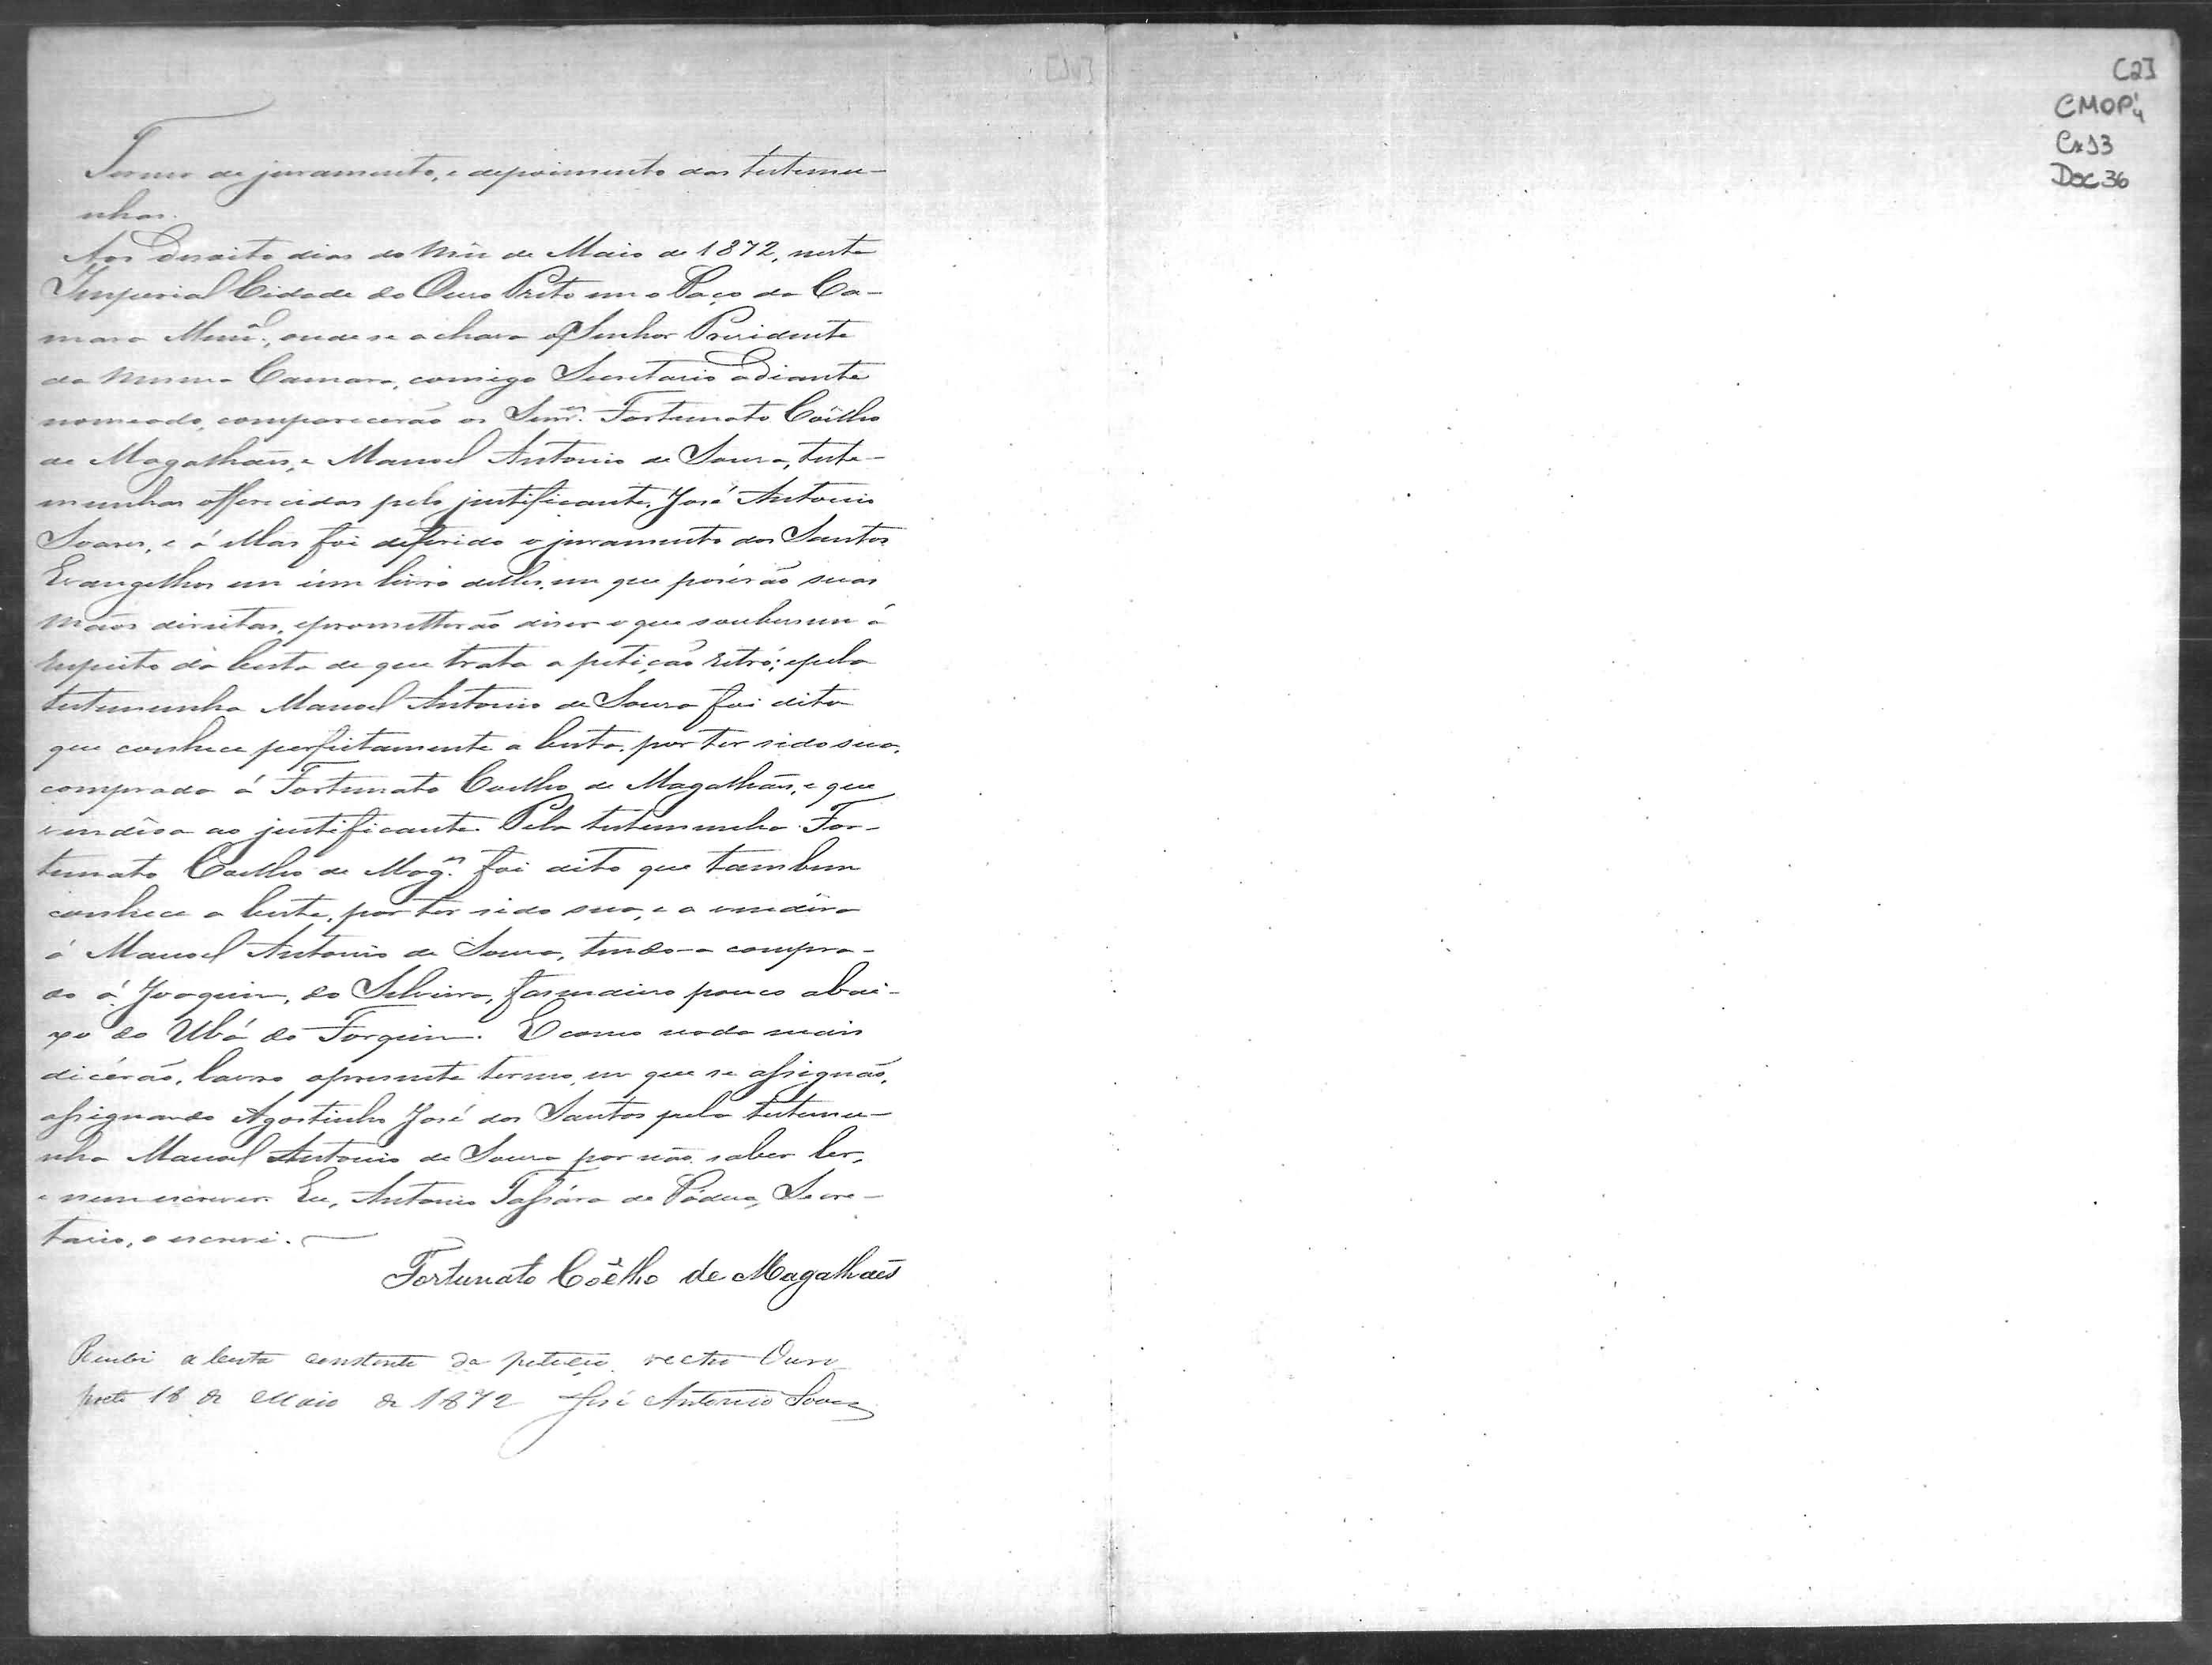 [1v]
[2]
CMOP¹4
Cx 13
Doc 36
Termo de juramento, e depoimento das testemu-
nhas.
Aos desoito dias do mês de Maio de 1872, nesta
Imperial Cidade do Ouro Preto em o Paço da Ca-
mara Munal., onde se achava o Senhor Presidente
da mesma Camara, comigo Secretario adiante
nomeado, comparecerão os Senrs. Fortunato Coêlho
de Magalhães, e Manoel Antonio de Souza, teste-
munhas offerecidas pelo justificante, José Antonio
Soares, e á ellas foi deferido o juramento dos Santos
Evangelhos em um livro delles, em que poserão suas
mãos direitas, e prometterão diser o que soubessem á
respeito da besta de que trata a petição retró; e pela
testemunha Manoel Antonio de Souza foi dito
que conhece perfeitamente a besta, por ter sido sua,
comprada á Fortunato Coelho de Magalhães, e que
vendêra ao justificante. Pela testemunha For-
tunato Coelho de Mag.es foi dito que tambem
conhece a besta, por ter sido sua, e a vendêra
á Manoel Antonio de Souza, tendo-a compra-
do á Joaquim, do Silveira, fasendeiro pouco abai-
xo do Ubá do Forquim. E como nada mais
dicérão, lavro o presente termo, em que se assignão,
assignando Agostinho José dos Santos pela testemu-
nha Manoel Antonio de Souza por não saber ler,
e nem escrever. Eu, Antonio Tassára de Pádua, Secre-
tario, o escrevi.
Fortunato Coêlho de Magalhaẽs
Recebi a besta constante da petição retro Ouro
preto 18 de Maio de 1872 José Antonio Soares